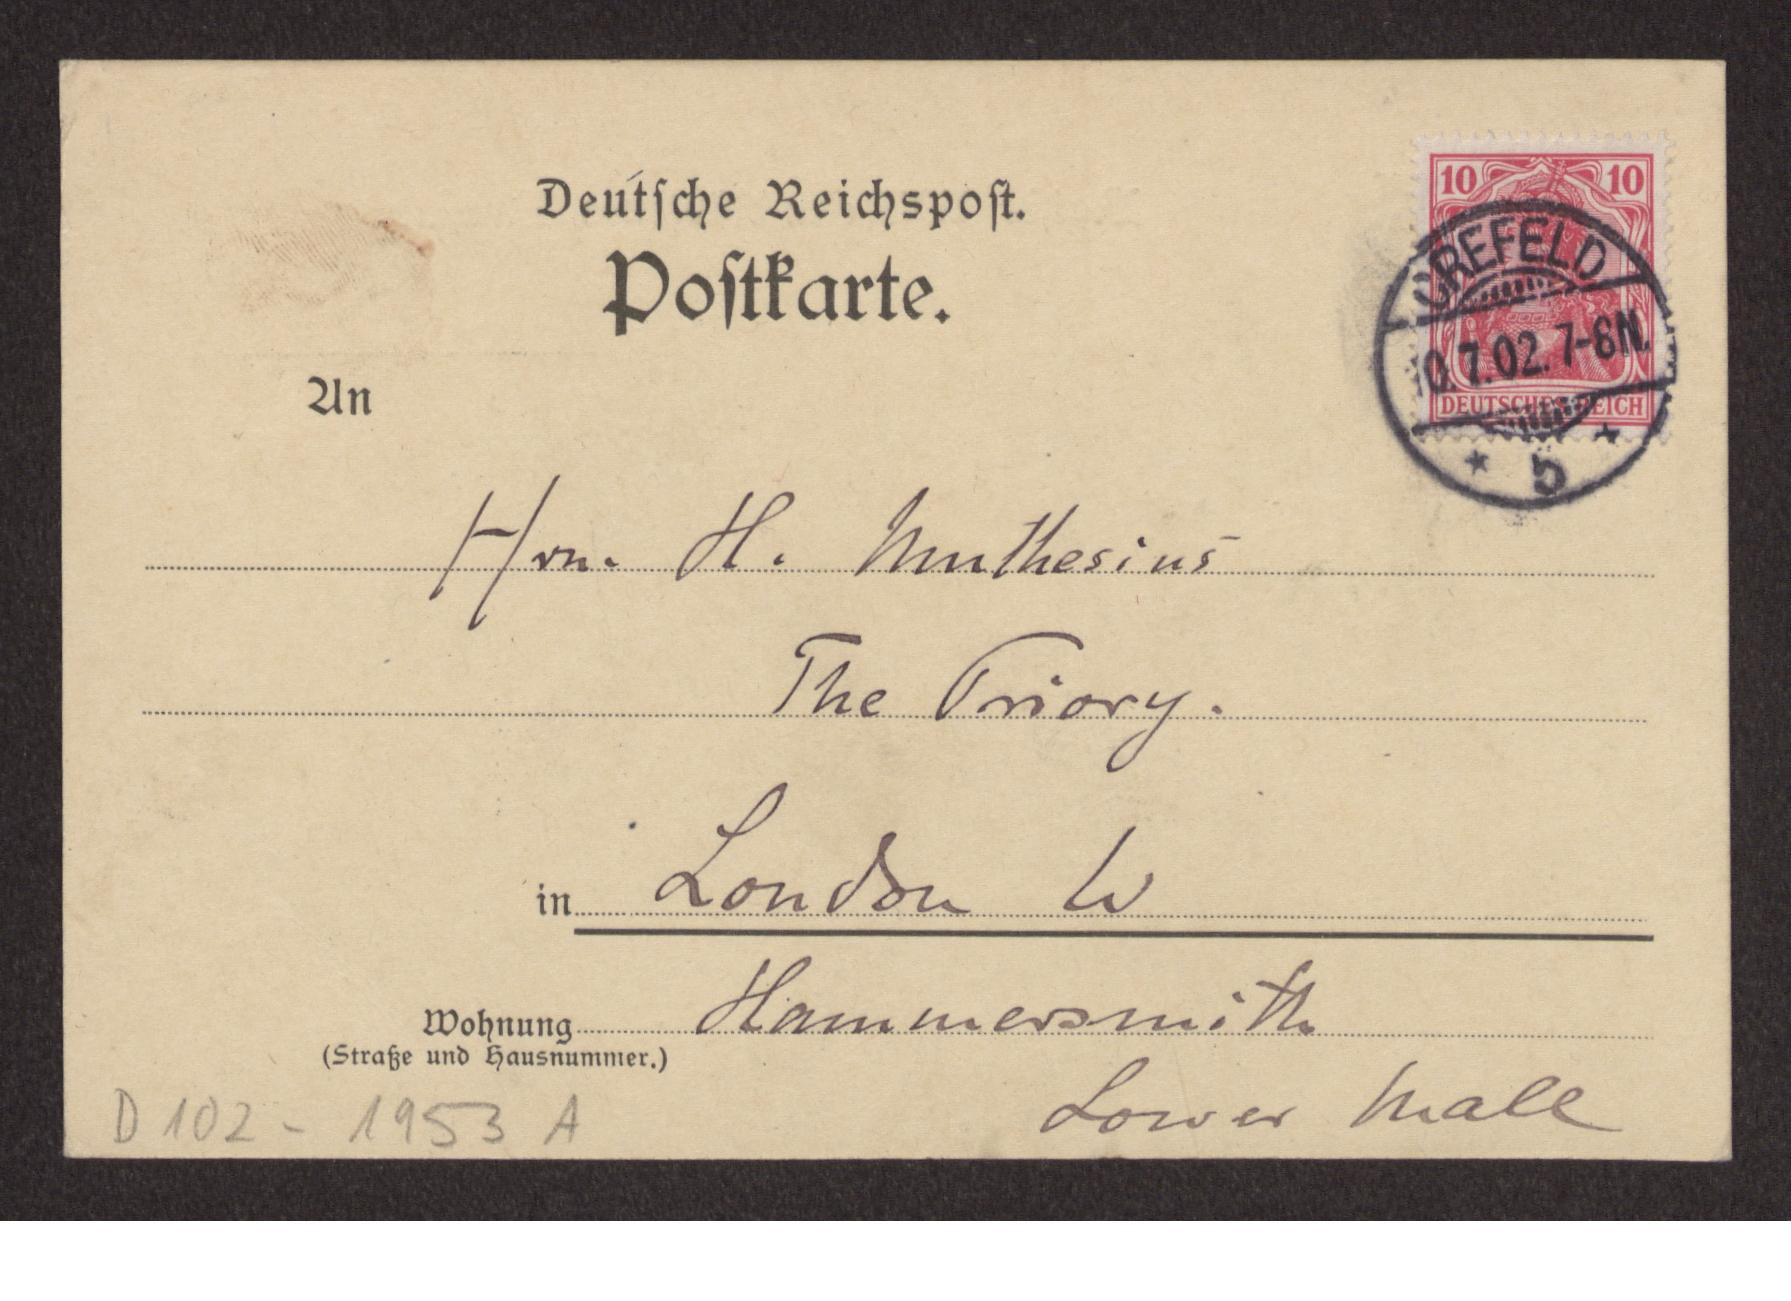 Deutsche Reichspost.
Postkarte.
10 10
DEUTSCHES REICH
CREFELD
0.7.02. 7-8N.
* 5 *
An
Hrn. H. Muthesius
The Priory.
in London W
Hammersmith
Wohnung
(Straße und Hausnummer.)
Lower Mall
D 102 - 1953 A